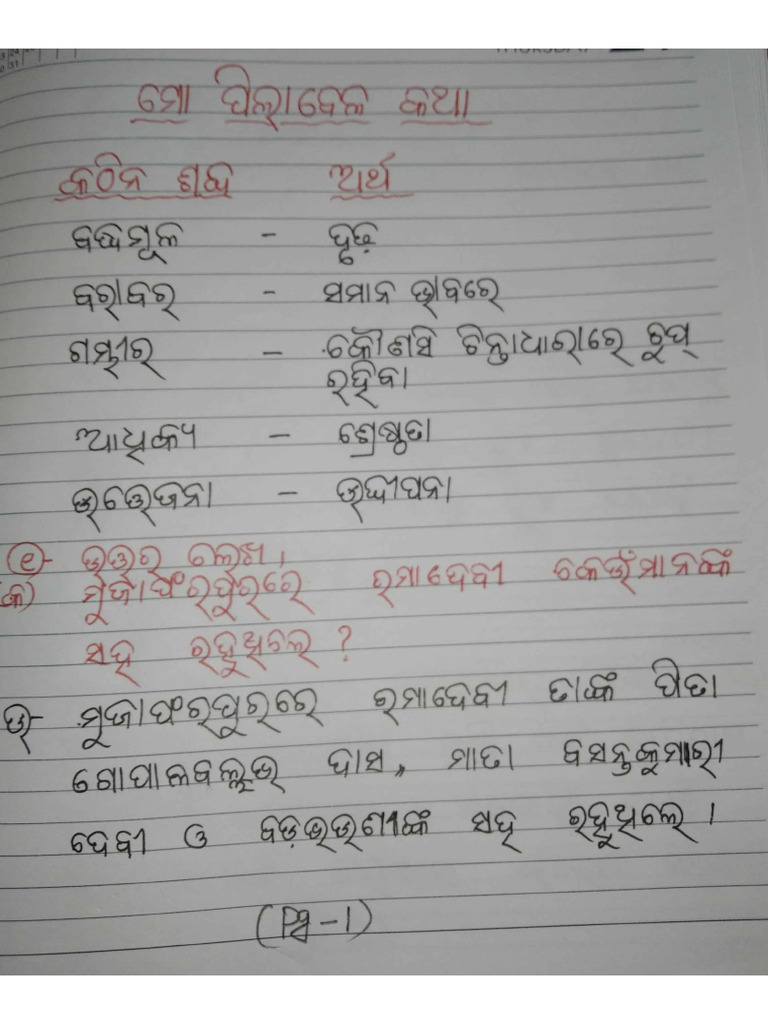 ମୋ ପିଲାବେଳ କଥା
କଠିନ ଶବ୍ଦ ଅର୍ଥ
ବଦ୍ଧମୂଳ - ଦୃଢ଼
ବରାବର - ସମାନ ଭାବରେ
ଗମ୍ଭୀର - କୌଣସି ଚିନ୍ତାଧାରାରେ ଚୁପ୍
ରହିବା
ଆଧିକ୍ୟ - ଶ୍ରେଷ୍ଠତା
ଉତ୍ତେଜନା - ଉଦ୍ଦୀପନା
୧- ଉତ୍ତର ଲେଖ ।
କ) ମୁଜାଫରପୁରରେ ରମାଦେବୀ କେଉଁମାନଙ୍କ
ସହ ରହୁଥିଲେ ?
ଉ- ମୁଜାଫରପୁରରେ ରମାଦେବୀ ତାଙ୍କ ପିତା
ଗୋପାଳବଲ୍ଲଭ ଦାସ, ମାତା ବସନ୍ତକୁମାରୀ
ଦେବୀ ଓ ବଡ଼ଭଉଣୀଙ୍କ ସହ ରହୁଥିଲେ ।